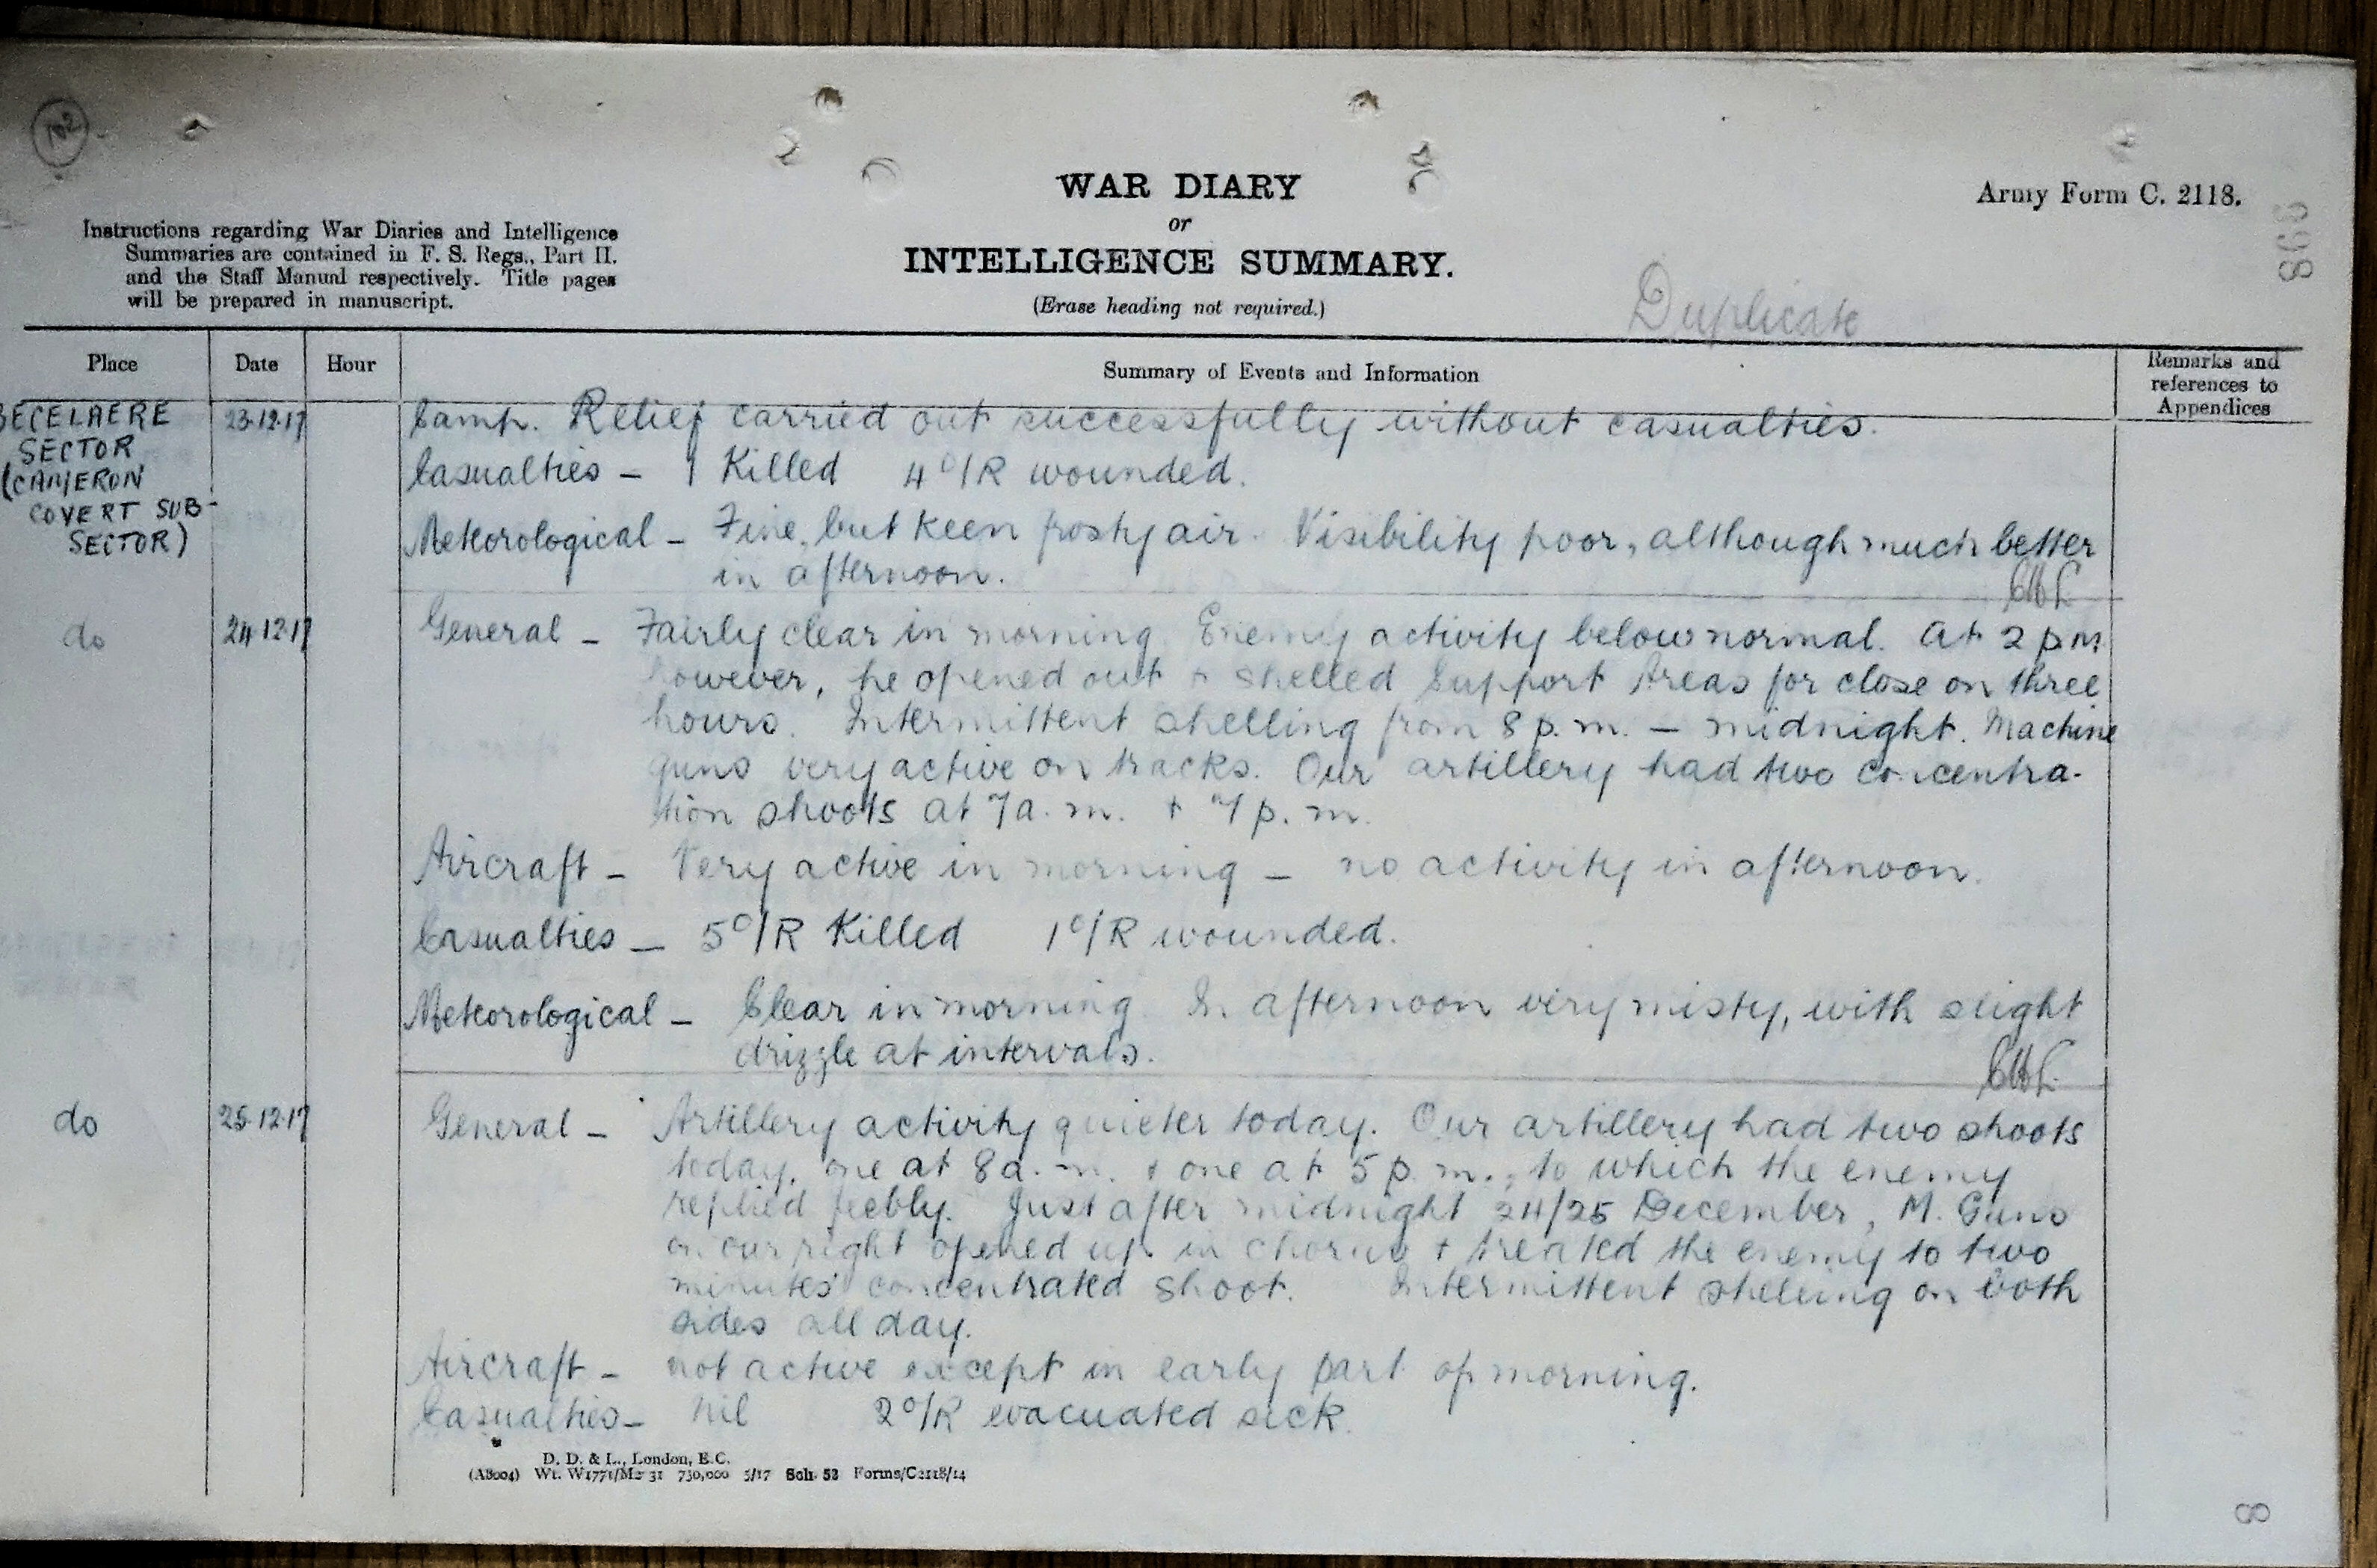 102
WAR DIARY
or
INTELLIGENCE SUMMARY.
(Erase heading not required.)
Army Form C. 2118.
Instructions regarding War Diaries and Intelligence
Summaries are contained in F. S. Regs., Part II.
and the Staff Manual respectively. Title pages
will be prepared in manuscript.
Duplicate
868
Place Date Hour Summary of Events and Information Remarks and
references to
Appendices
BECELAERE 23.12.17 Camp. Relief carried out successfully without casualties.
SECTOR
(CAMERON
COVERT SUB-
SECTOR)
Casualties – 1 Killed 4 O/R wounded.
Meteorological – Fine, but keen frosty air. Visibility poor, although much better
in afternoon.
do 24.12.17 General – Fairly clear in morning. Enemy activity below normal. At 2 p.m
however, he opened out + shelled Support Areas for close on three
hours. Intermittent shelling from 8 p.m. – midnight. Machine
guns very active on tracks. Our artillery had two concentra-
tion shoots at 7 a.m. + 7 p.m.
Aircraft – Very active in morning – no activity in afternoon.
Casualties – 5 O/R Killed 1 O/R wounded.
Meteorological – Clear in morning. In afternoon very misty, with slight
drizzle at intervals.
do 25.12.17 General – Artillery activity quieter today. Our artillery had two shoots
today, one at 8 a.m. + one at 5 p.m., to which the enemy
replied feebly. Just after midnight 24/25 December, M. Guns
on our right opened up in chorus + treated the enemy to two
minutes' concentrated shoot. Intermittent shelling on both
sides all day.
Aircraft – not active except in early part of morning.
Casualties – nil 2 O/R evacuated sick.
D. D. & L., London, E.C.
(A8004) Wt. W1771/M2 31 750,000 5/17 Sch. 52 Forms/C2118/14
8